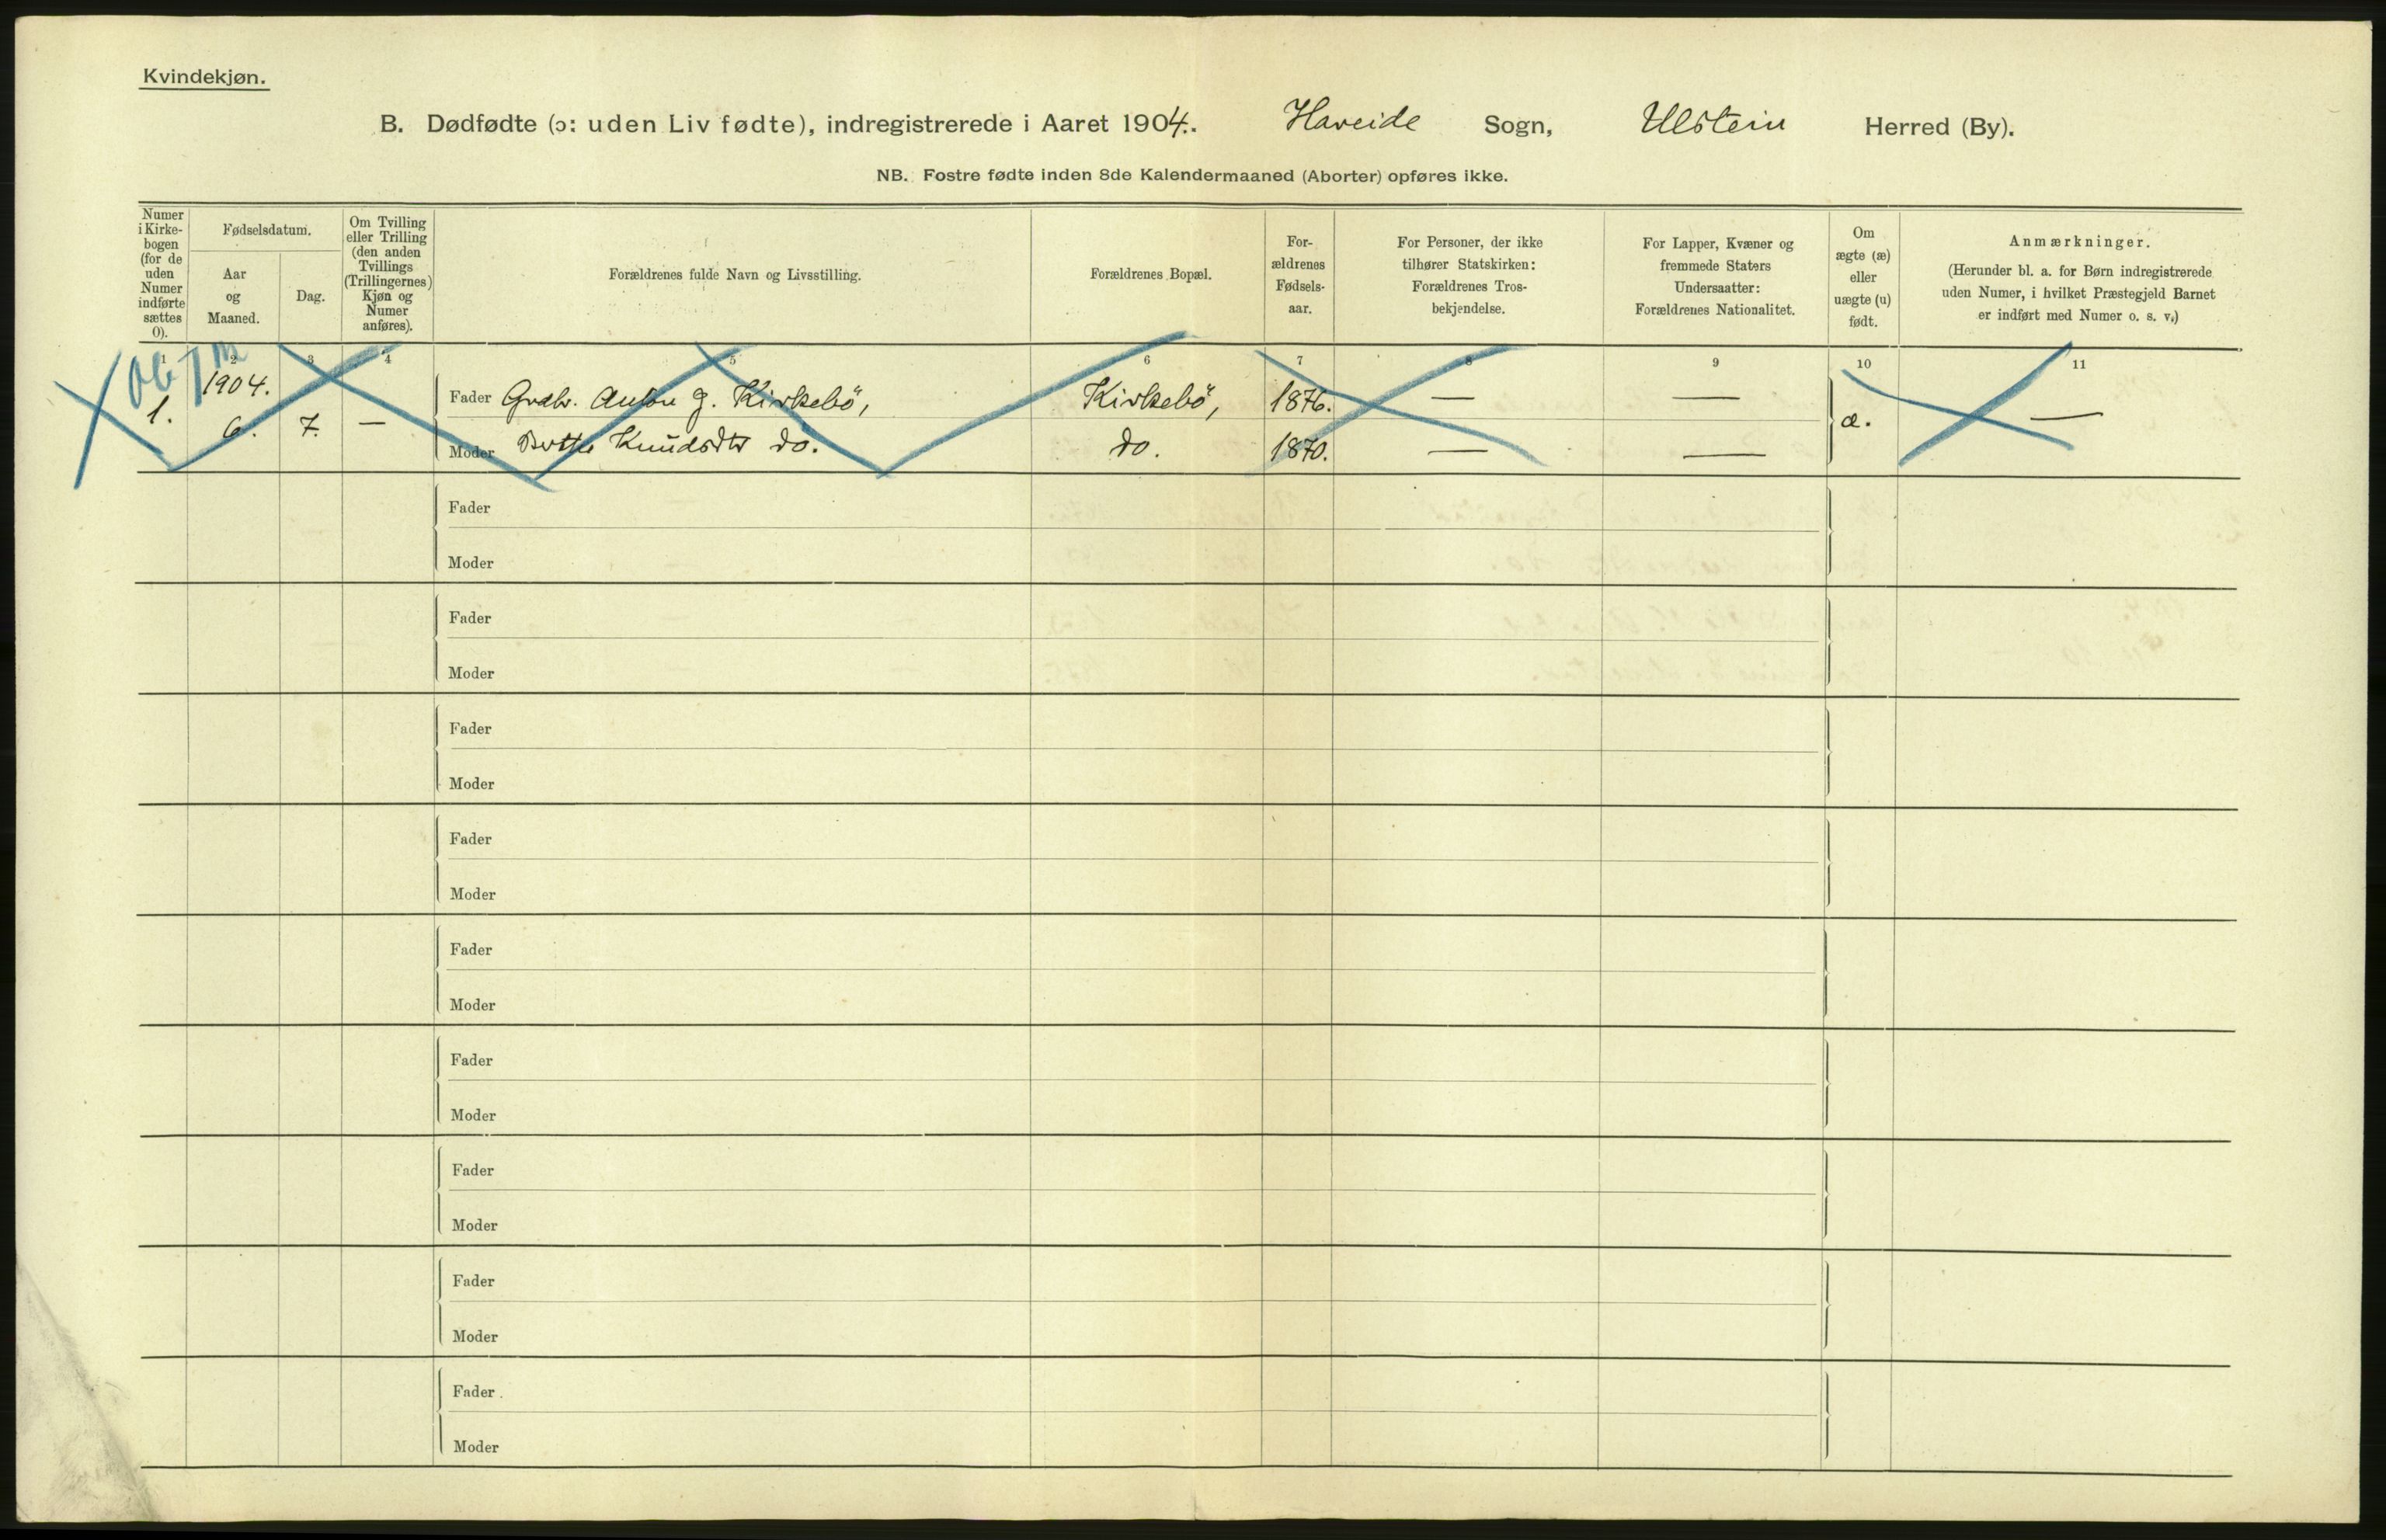 Kvindekjøn.
B. Dødfødte (ɔ: uden Liv fødte), indregistrerede i Aaret 1904. Hareide Sogn, Ulstein Herred (By).
NB. Fostre fødte inden 8de Kalendermaaned (Aborter) opføres ikke.
Numer
i Kirke-
bogen
(for de
uden
Numer
indførte
sættes
0).
Fødselsdatum.
Aar
og
Maaned.
Dag.
Om Tvilling
eller Trilling
(den anden
Tvillings
(Trillingernes)
Kjøn og
Numer
anføres).
Forældrenes fulde Navn og Livsstilling.
Forældrenes Bopæl.
For-
ældrenes
Fødsels-
aar.
For Personer, der ikke
tilhører Statskirken:
Forældrenes Tros-
bekjendelse.
For Lapper, Kvæner og
fremmede Staters
Undersaatter:
Forældrenes Nationalitet.
Om
ægte (æ)
eller
uægte (u)
født.
Anmærkninger.
(Herunder bl. a. for Børn indregistrerede
uden Numer, i hvilket Præstegjeld Barnet
er indført med Numer o. s. v.)
1 2 3 4 5 6 7 8 9 10 11
1904.
1. 6. 7. —
Fader Grdbr. Anton G. Kirkebö, Kirkebö, 1876. — —
æ. —
Moder Berthe Knudsdtr do. do. 1870. — —
Fader
Moder
Fader
Moder
Fader
Moder
Fader
Moder
Fader
Moder
Fader
Moder
Fader
Moder
Fader
Moder
Fader
Moder